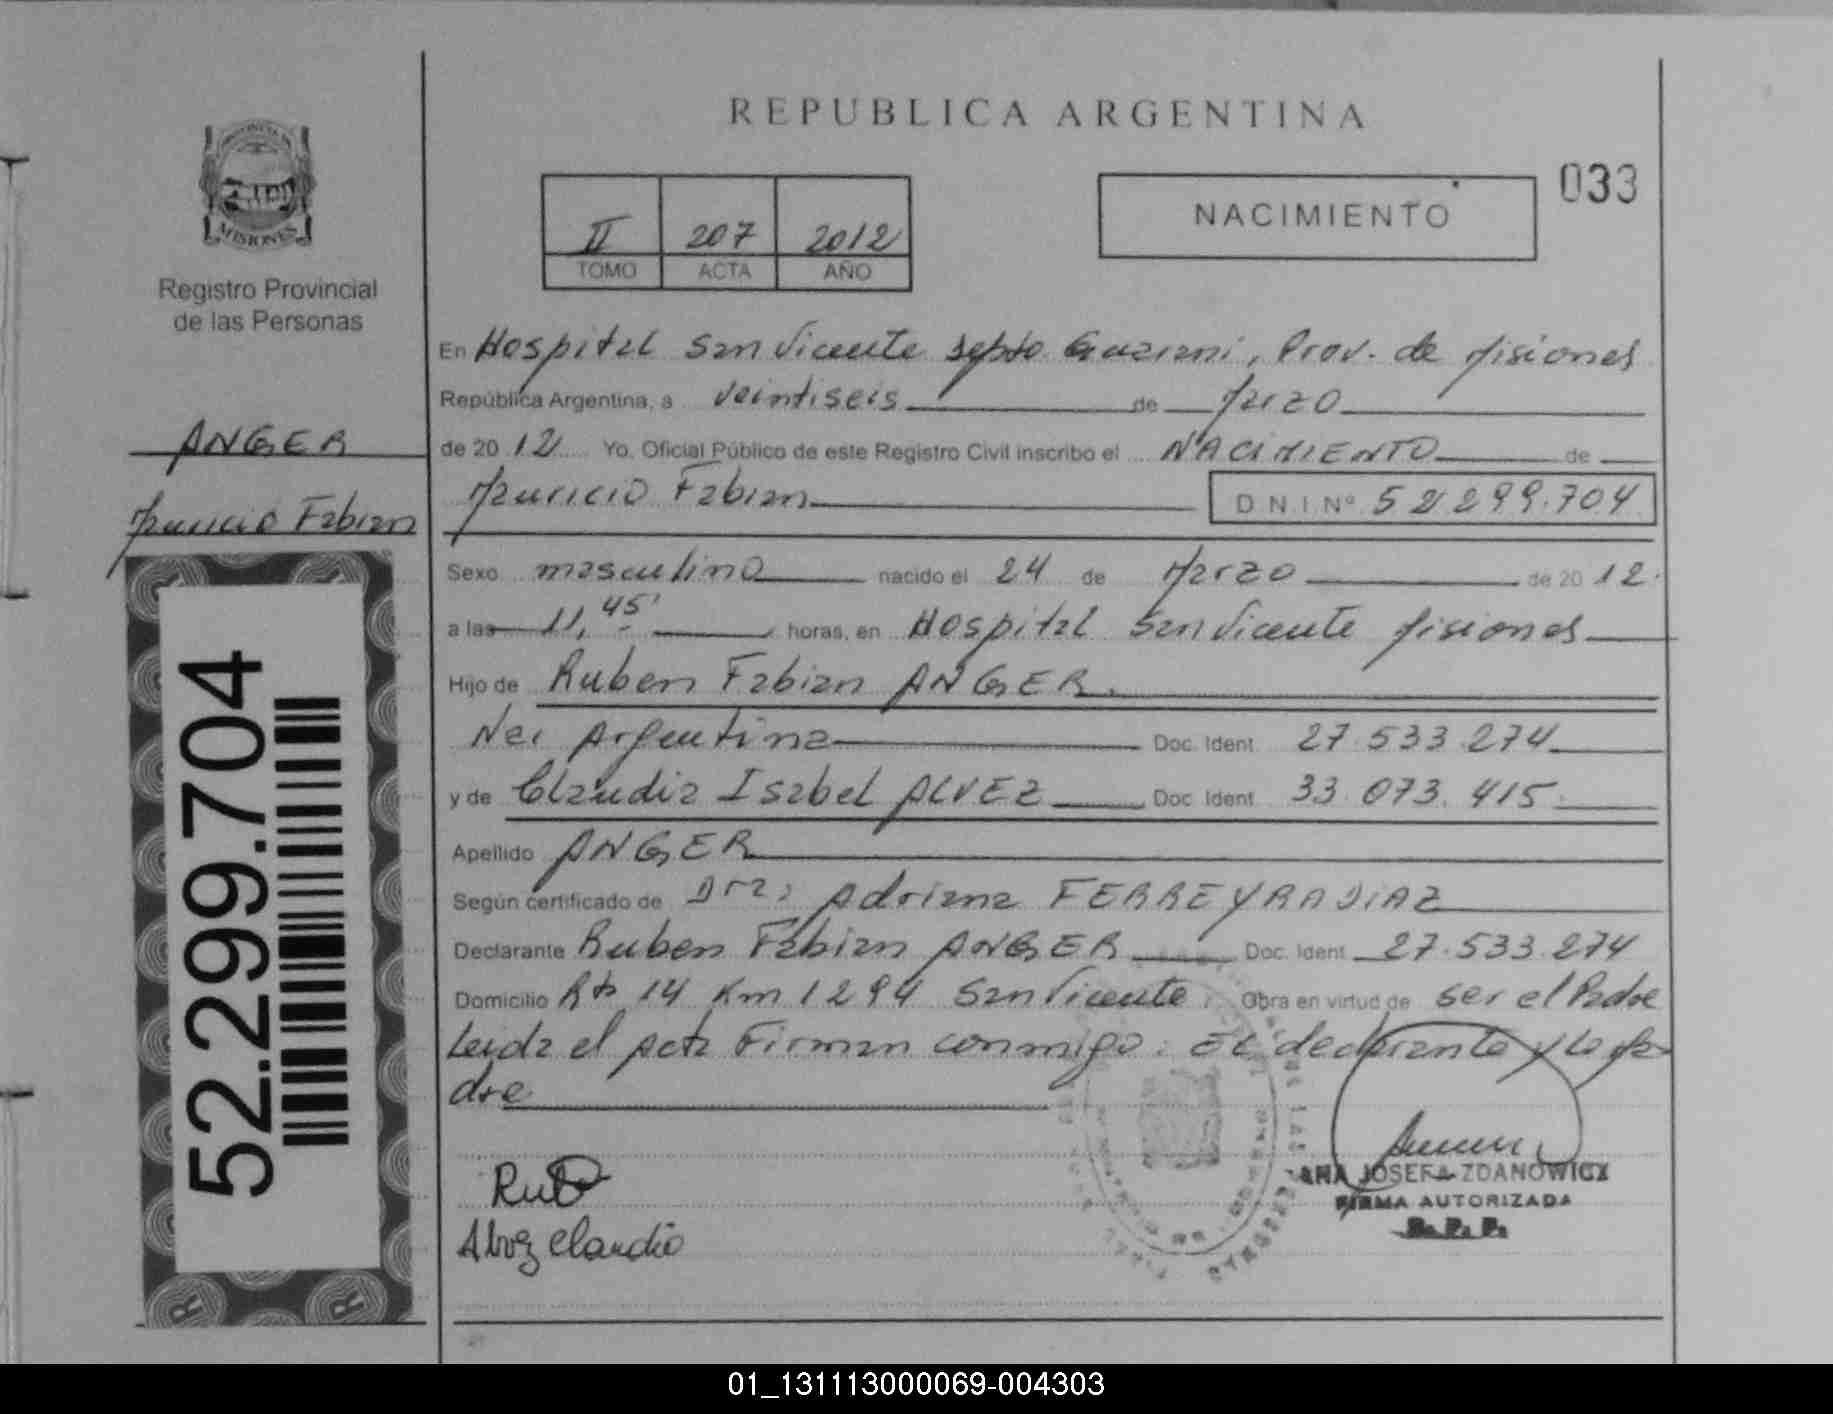 REPUBLICA ARGENTINA
033
NACIMIENTO
II 207 2012
TOMO ACTA AÑO
MISIONES
Registro Provincial
de las Personas
ANGER
Mauricio Fabian
52.299.704
En Hospital San Vicente Depto Guarani, Prov. de Misiones
República Argentina, a veintiseis de Marzo
de 20 12 Yo, Oficial Público de este Registro Civil inscribo el NACIMIENTO de
Mauricio Fabian D.N.I.Nº 52.299.704
Sexo masculino nacido el 24 de Marzo de 20 12.
a las 11,45' horas, en Hospital San Vicente Misiones
Hijo de Ruben Fabian ANGER.
Nac Argentina Doc. Ident. 27.533.274
y de Claudia Isabel ALVEZ Doc. Ident. 33.073.415.
Apellido ANGER
Según certificado de Dra: Adriana FERREYRA DIAZ
Declarante Ruben Fabian ANGER Doc. Ident. 27.533.274
Domicilio Rta 14 Km 1294 San Vicente. Obra en virtud de ser el Padre
Leida el Acta Firman conmigo: El declarante y la Ma-
dre
Alvez Claudia
ANA JOSEFA ZDANOWICZ
FIRMA AUTORIZADA
R. P. P.
01_131113000069-004303